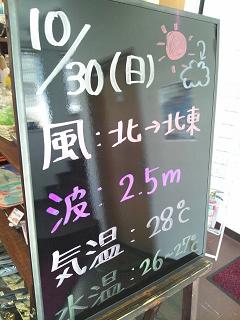 10/30(日)
風:北→北東
波:2.5m
気温:28℃
水温:26~27℃